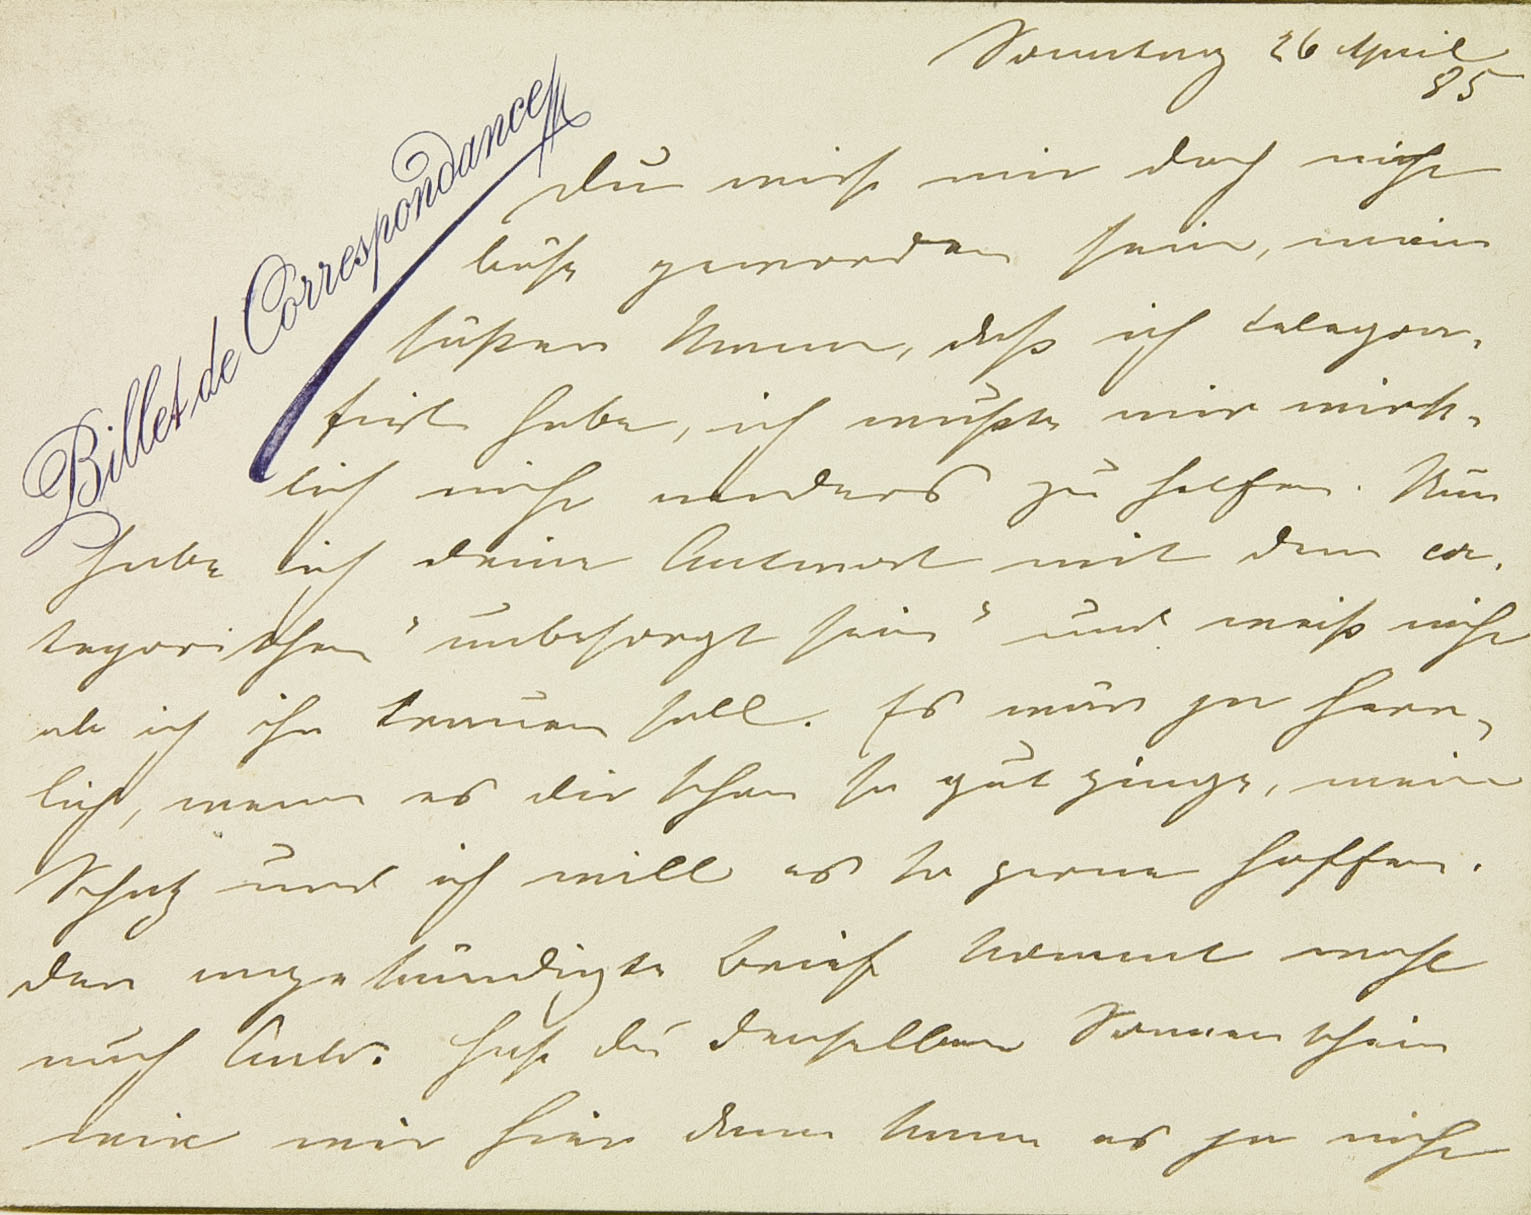 Sonntag 26 April
85
Billet de Correspondance
Du wirst mir doch nicht
böse geworden sein, mein
süßer Mann, daß ich telegra-
firt habe, ich wußte mir wirk-
lich nicht anders zu helfen. Nun
habe ich deine Antwort mit dem ca-
tegorischen "unbesorgt sein" und weiß nicht
ob ich ihr trauen soll. Es wär ja herr-
lich, wenn es dir schon so gut ginge, mein
Schatz und ich will es so gerne hoffen.
Der angekündigte Brief kommt wohl
auch bald. Hast du denselben Sonnenschein
wie wir hier dann kann es ja nicht